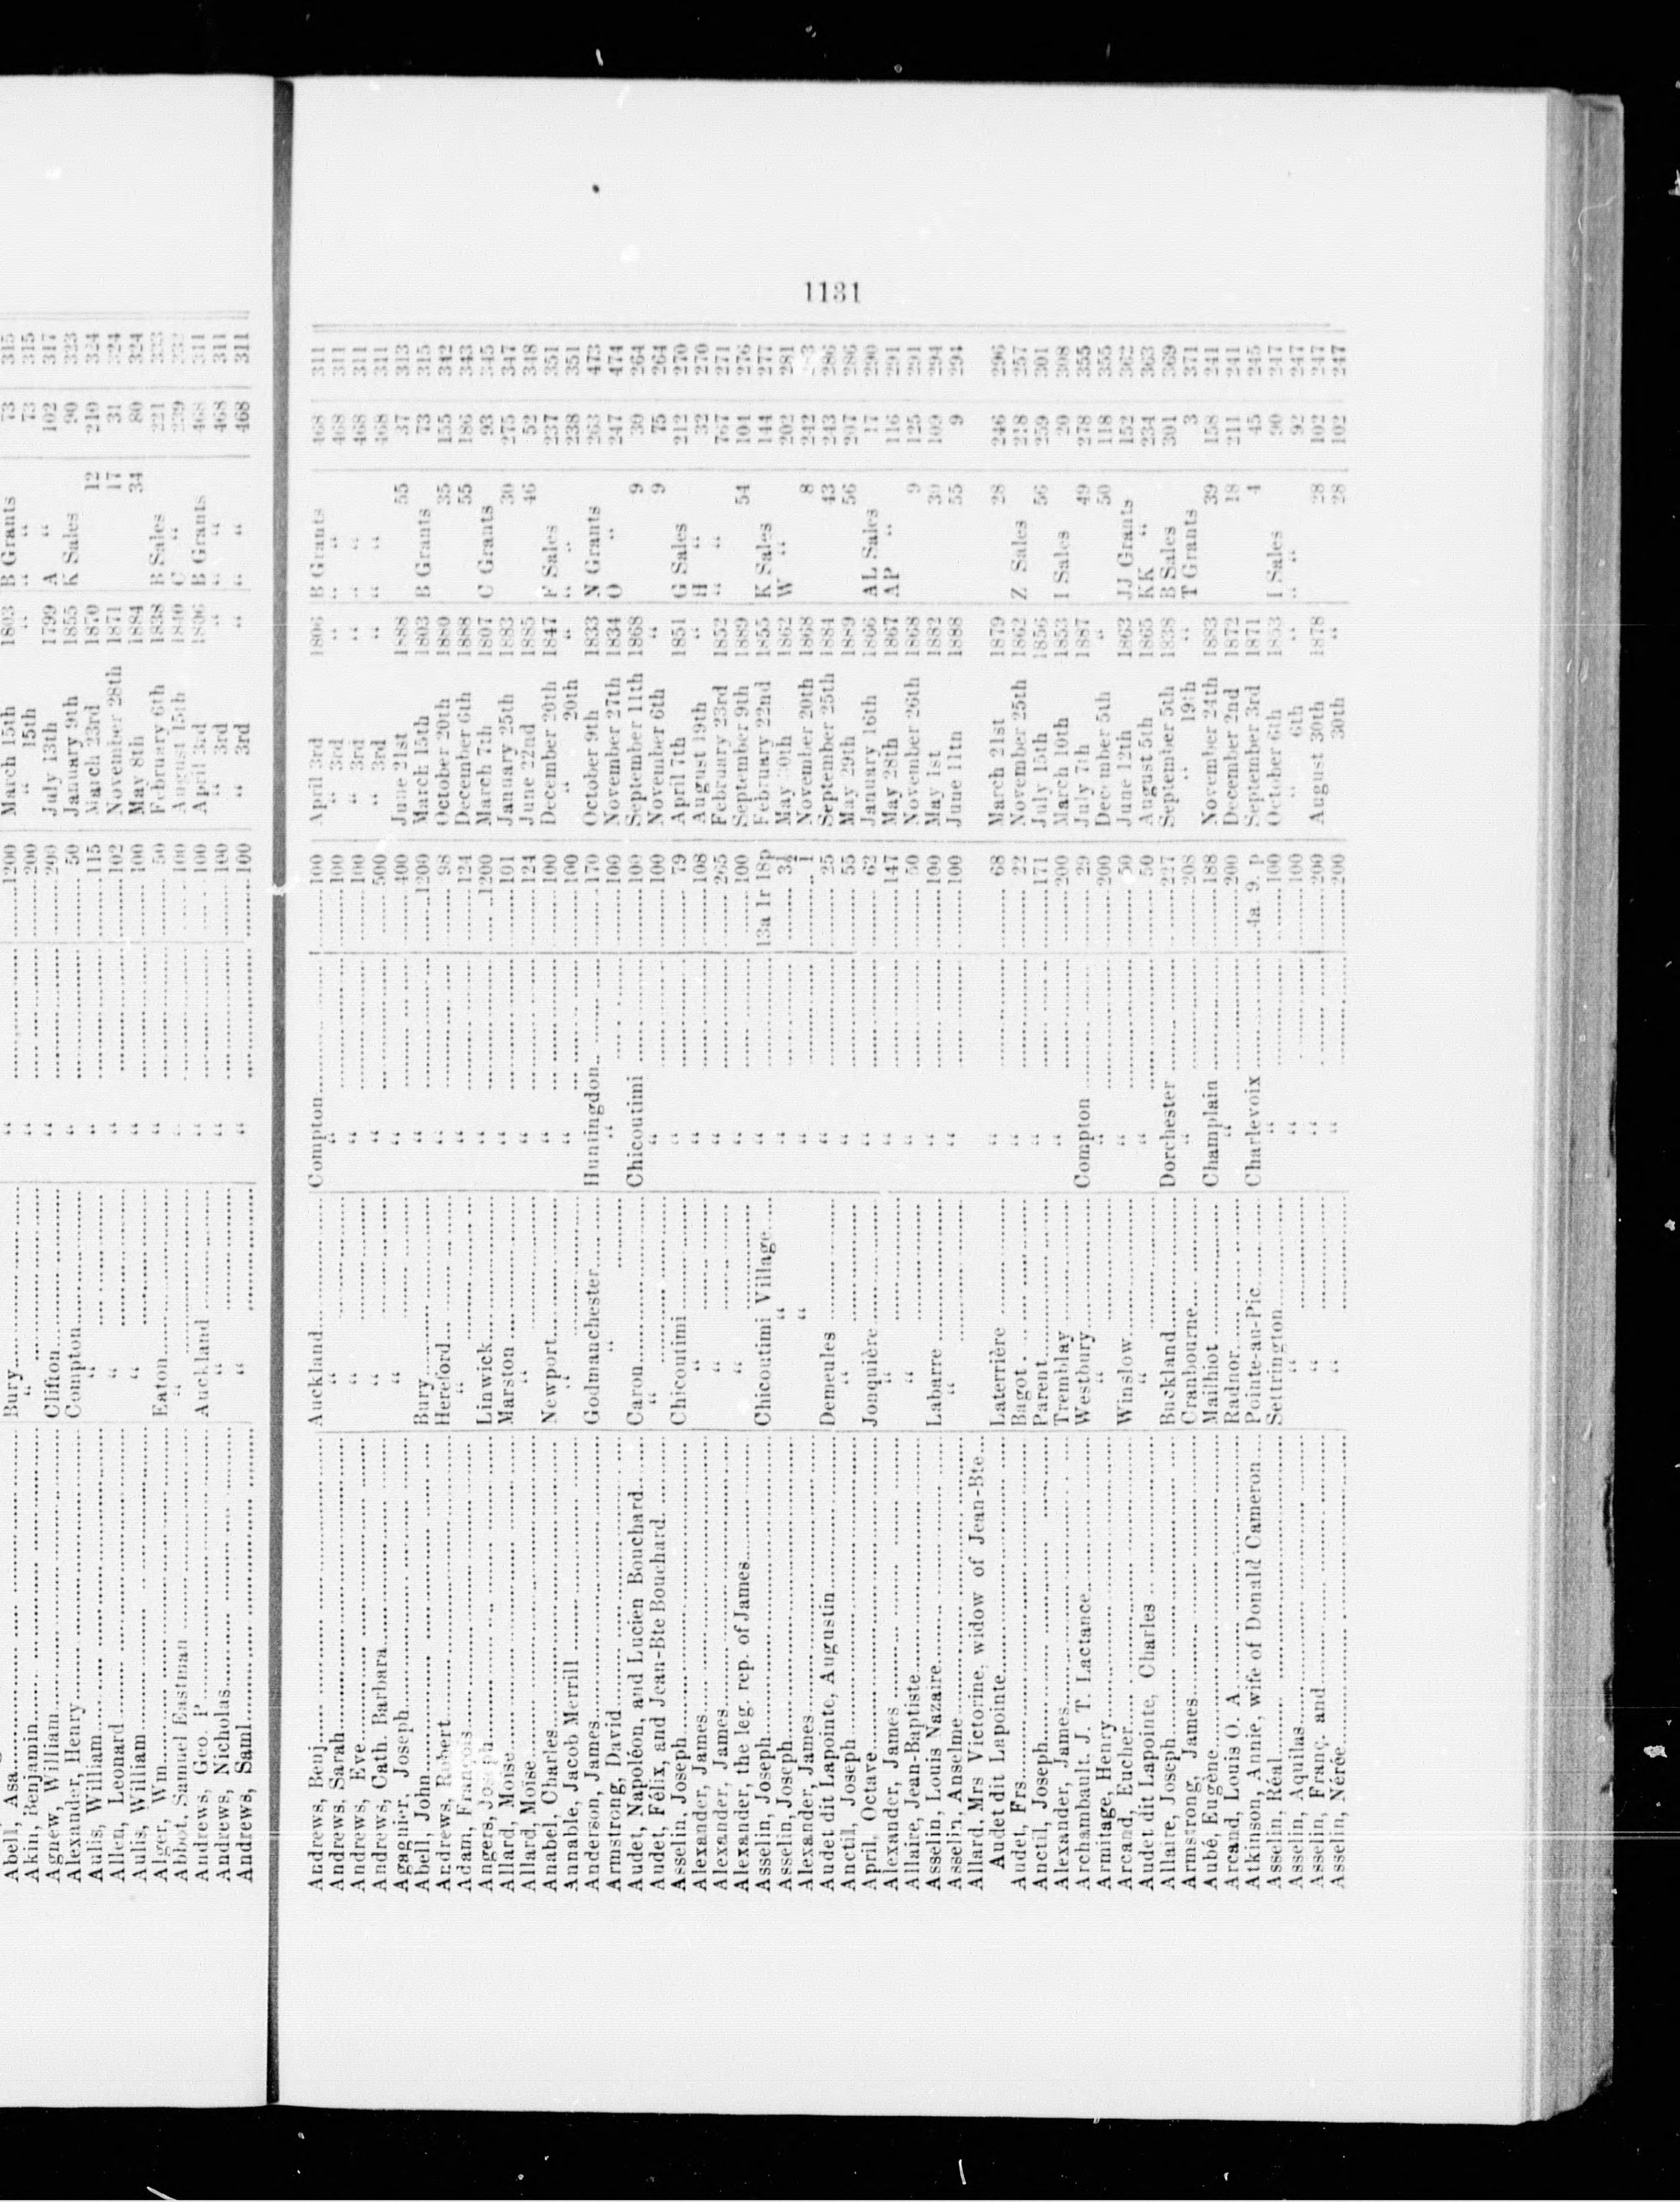 1131
Abell, Asa Bury “ 1200 March 15th 1803 B Grants 73 315
Akin, Benjamin “ “ 200 “ 15th “ “ “ 73 315
Agnew, William Clifton “ 200 July 13th 1799 A “ 102 317
Alexander, Henry Compton “ 50 January 9th 1855 K Sales 90 323
Aulis, William “ “ 115 March 23rd 1870 12 210 324
Allen, Leonard “ “ 102 November 28th 1871 17 31 324
Aulis, William “ “ 100 May 8th 1884 34 80 324
Alger, Wm Eaton “ 50 February 6th 1838 B Sales 221 333
Abbot, Samuel Eastman “ “ 100 August 15th 1840 C “ 229
Andrews, Geo. P Auckland “ 100 April 3rd 1806 B Grants 468 311
Andrews, Nicholas “ “ 100 “ 3rd “ “ “ 468 311
Andrews, Saml “ “ 100 “ 3rd “ “ “ 468 311
Andrews, Benj Auckland Compton 100 April 3rd 1806 B Grants 468 311
Andrews, Sarah “ “ 100 “ 3rd “ “ “ 468 311
Andrews, Eve “ “ 100 “ 3rd “ “ “ 468 311
Andrews, Cath. Barbara “ “ 500 “ 3rd “ “ “ 468 311
Aganier, Joseph “ “ 400 June 21st 1888 55 37 313
Abell, John Bury “ 1200 March 15th 1803 B Grants 73 315
Andrews, Robert Hereford “ 98 October 20th 1880 35 155 342
Adam, François “ “ 124 December 6th 1888 55 186 343
Angers, Joseph Linwick “ 1200 March 7th 1807 C Grants 93 345
Allard, Moise Marston “ 101 January 25th 1883 30 275 347
Allard, Moise “ “ 124 June 22nd 1885 46 52 348
Anabel, Charles Newport “ 100 December 20th 1847 F Sales 237 351
Annable, Jacob Merrill “ “ 100 “ 20th “ “ “ 238 351
Anderson, James Godmanchester Huntingdon 170 October 9th 1833 N Grants 263 473
Armstrong, David “ “ 100 November 27th 1834 O “ 247 474
Audet, Napoléon, and Lucien Bouchard Caron Chicoutimi 100 September 11th 1868 9 30 264
Audet, Félix, and Jean-Bte Bouchard “ “ 100 November 6th “ 9 75 264
Asselin, Joseph Chicoutimi “ 79 April 7th 1851 G Sales 212 270
Alexander, James “ “ 108 August 19th “ H “ 32 270
Alexander, James “ “ 265 February 23rd 1852 “ “ 767 271
Alexander, the leg. rep. of James “ “ 100 September 9th 1889 54 104 276
Asselin, Joseph Chicoutimi Village “ 13a 1r 18p February 22nd 1855 K Sales 144 277
Asselin, Joseph “ “ May 30th 1862 W “ 202 281
Alexander, James “ “ 1 November 20th 1868 8 242
Audet dit Lapointe, Augustin Demeules “ 25 September 25th 1884 43 243 286
Anctil, Joseph “ “ 55 May 29th 1889 56 207 286
April, Octave Jonquière “ 62 January 16th 1866 AL Sales 17 290
Alexander, James “ “ 147 May 28th 1867 AP “ 116 291
Allaire, Jean-Baptiste “ “ 50 November 26th 1868 9 125 291
Asselin, Louis Nazaire Labarre “ 100 May 1st 1882 39 109 294
Asselin, Anselme “ “ 100 June 11th 1888 55 9 294
Allard, Mrs Victorine, widow of Jean-Bte
Audet dit Lapointe Laterrière “ 68 March 21st 1879 28 246 296
Audet, Frs Bagot “ 22 November 25th 1862 Z Sales 218 257
Anctil, Joseph Parent “ 171 July 15th 1856 56 259 301
Alexander, James Tremblay “ 200 March 10th 1853 I Sales 20 308
Archambault, J. T. Lactance Westbury Compton 29 July 7th 1887 49 278 355
Armitage, Henry “ “ 200 December 5th “ 50 118 355
Arcand, Eucher Winslow “ 50 June 12th 1863 JJ Grants 152 362
Audet dit Lapointe, Charles “ “ 50 August 5th 1865 KK “ 234 363
Allaire, Joseph Buckland Dorchester 227 September 5th 1838 B Sales 301 369
Armstrong, James Cranbourne “ 208 “ 19th “ T Grants 3 371
Aubé, Eugène Mailhiot Champlain 188 November 24th 1883 39 158 241
Arcand, Louis O. A Radnor “ 200 December 2nd 1872 18 211 241
Atkinson, Annie, wife of Donald Cameron Pointe-au-Pic Charlevoix 4a 9. p September 3rd 1871 4 45 245
Asselin, Réal Settrington “ 100 October 6th 1853 I Sales 90 247
Asselin, Aquilas “ “ 100 “ 6th “ “ “ 92 247
Asselin, Franç. and “ “ 200 August 30th 1878 28 102 247
Asselin, Nérée “ “ 200 30th “ 28 102 247